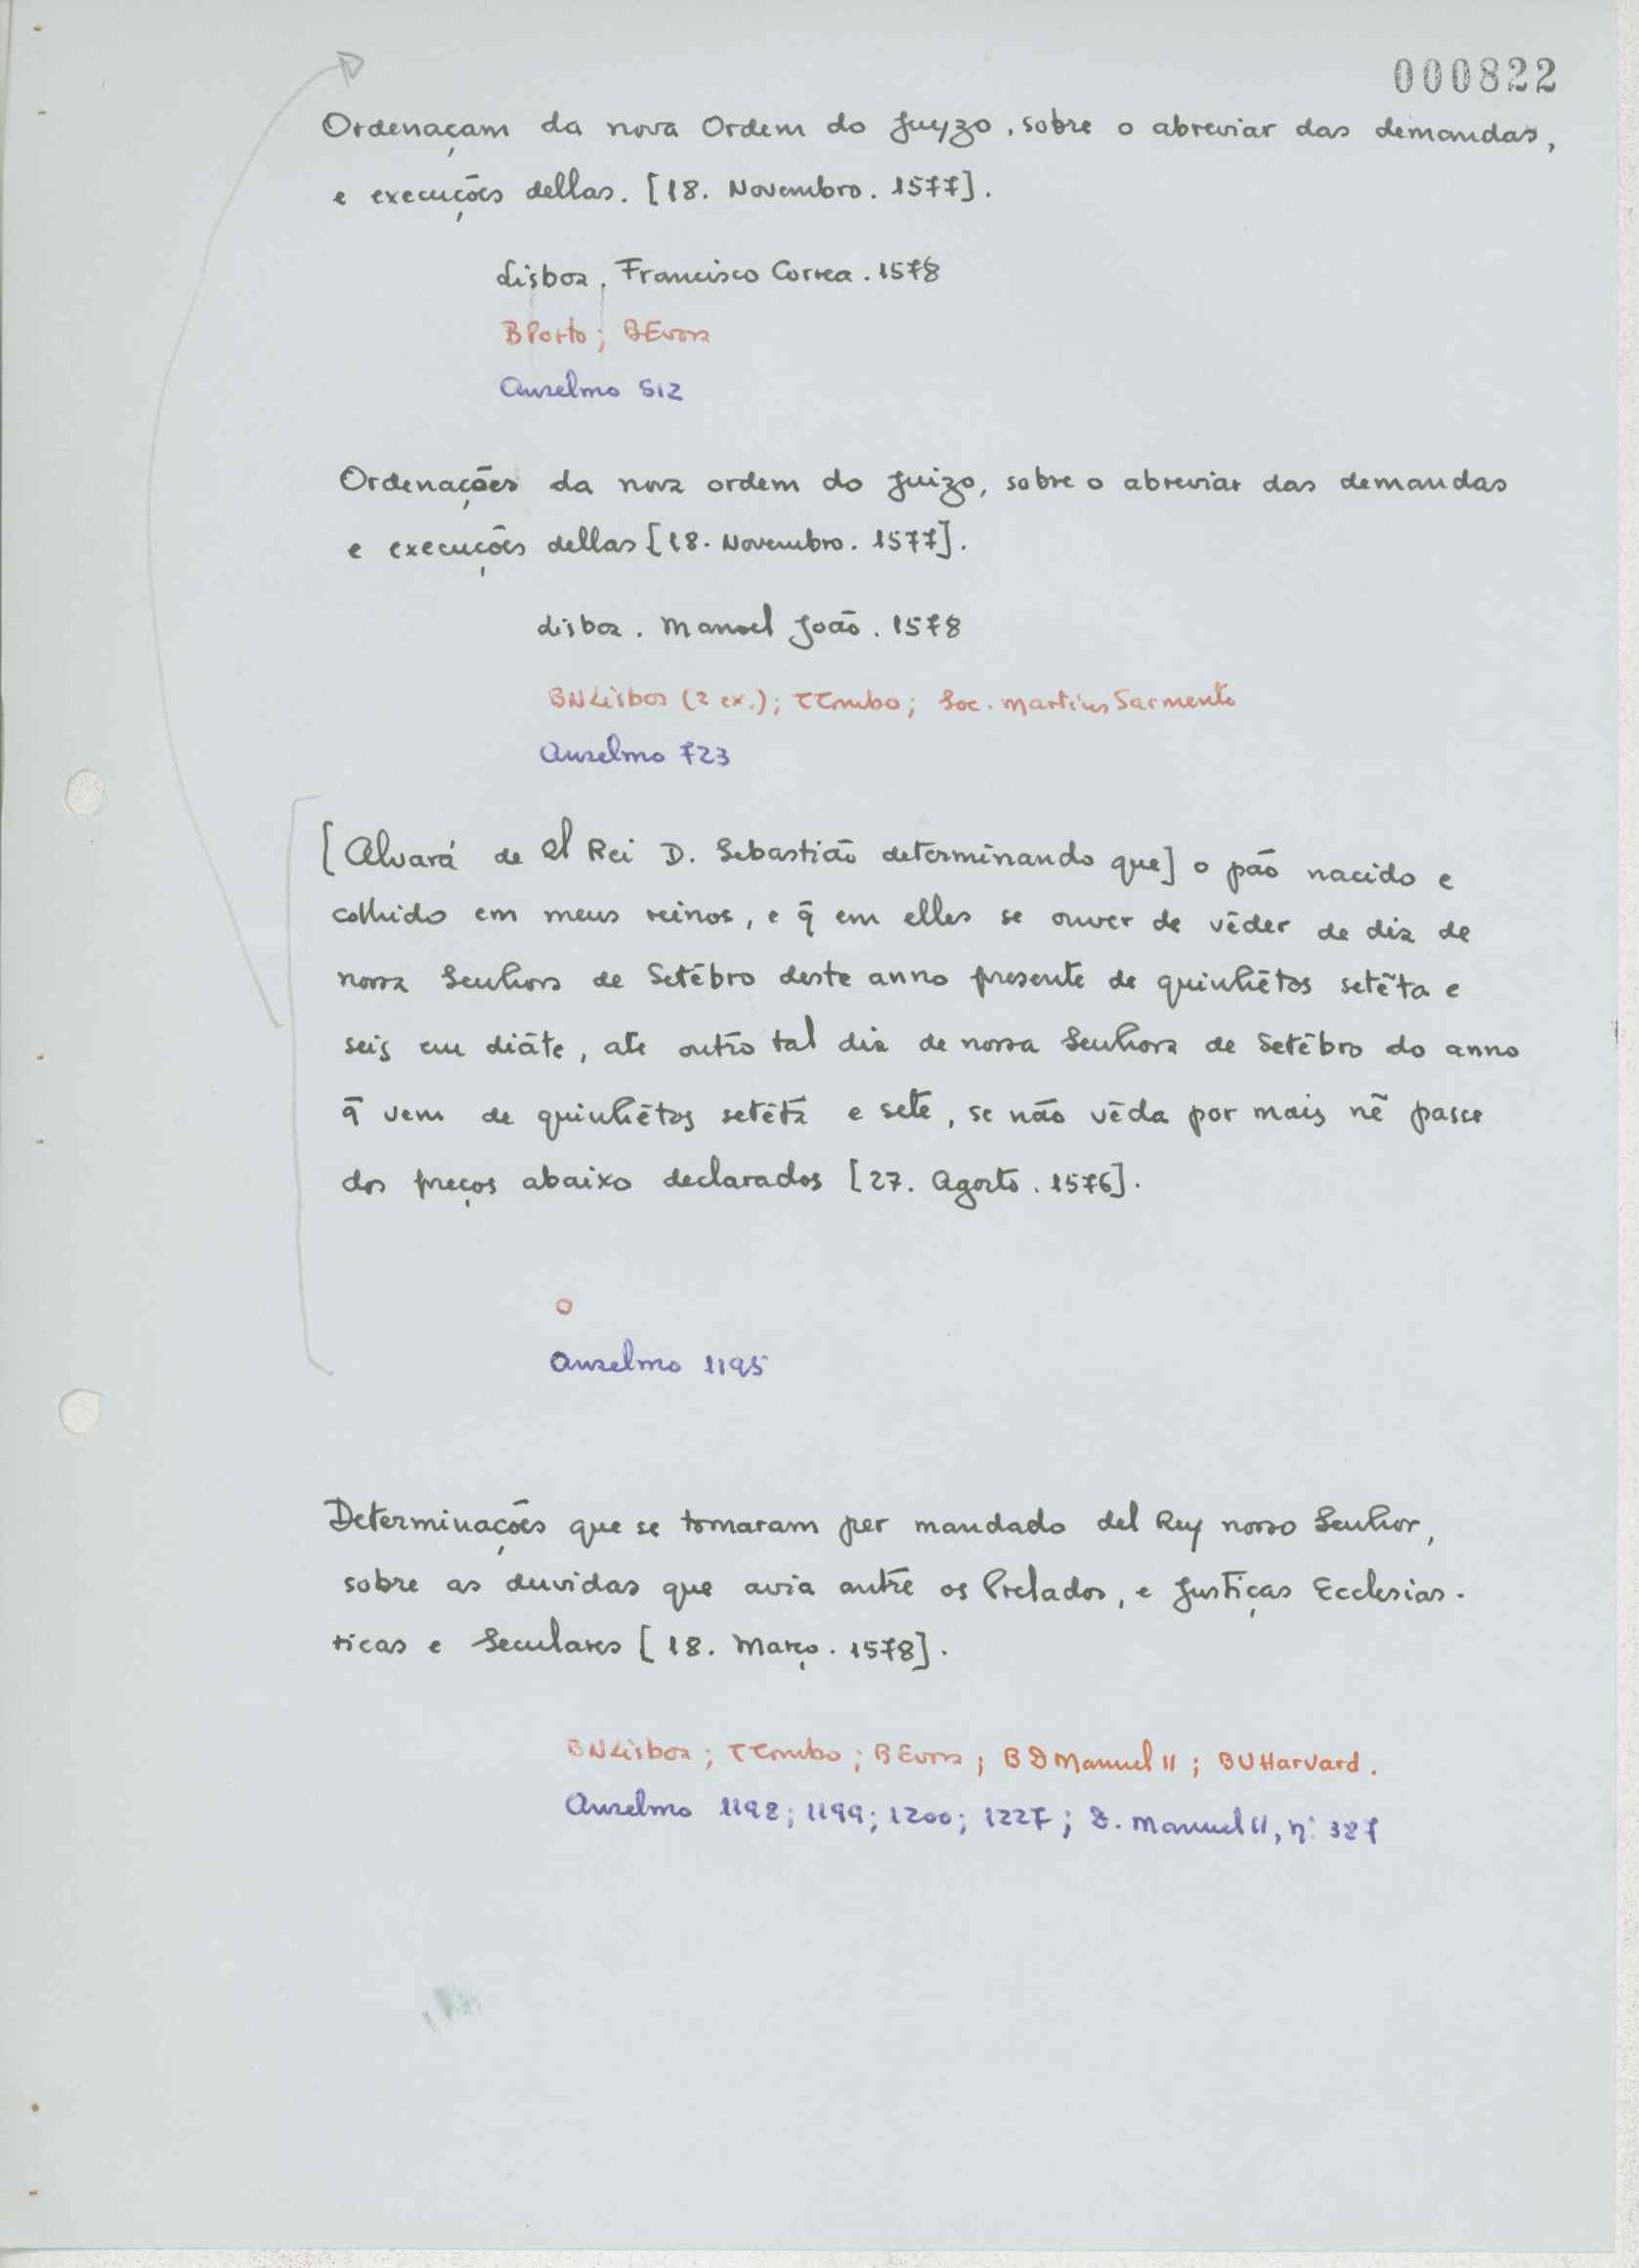 000822
Ordenaçam da nova Ordem do Juyzo, sobre o abreviar das demandas,
e execuções dellas. [18. Novembro. 1577].
Lisboa. Francisco Correa. 1578
BPorto; BEvora
Anselmo 512
Ordenações da nova ordem do Juizo, sobre o abreviar das demandas
e execuções dellas [18. Novembro. 1577].
Lisboa. Manoel João. 1578
BNLisboa (2 ex.); TTombo; Soc. Martins Sarmento
Anselmo 723
[Alvará de El Rei D. Sebastião determinando que] o pão nacido e
colhido em meus reinos, e q̃ em elles se ouver de vẽder de dia de
nossa Senhora de Setẽbro deste anno presente de quinhẽtos setẽta e
seis em diãte, ate outro tal dia de nossa Senhora de Setẽbro do anno
q̃ vem de quinhẽtos setẽta e sete, se não vẽda por mais nẽ passe
dos preços abaixo declarados [27. Agosto. 1576].
O
Anselmo 1195
Determinações que se tomaram per mandado del Rey nosso Senhor,
sobre as duvidas que avia antre os Prelados, e Justiças Ecclesias-
ticas e Seculares [18. Março. 1578].
BNLisboa; TTombo; BEvora; BDManuel II; BUHarvard.
Anselmo 1198; 1199; 1200; 1227; D. Manuel II, nº 327